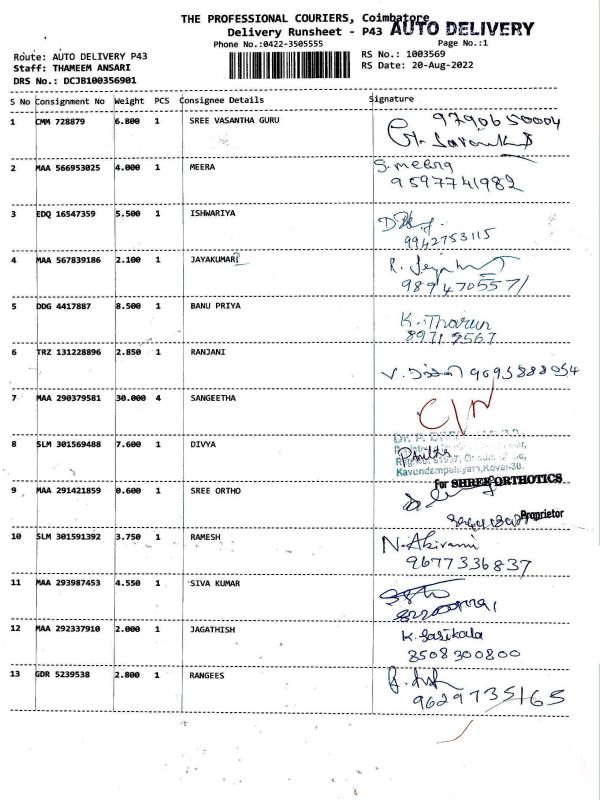 THE PROFESSIONAL COURIERS, Coimbatore
AUTO DELIVERY
Delivery Runsheet - P43
Phone No.:0422-3505555
Page No.:1
Route: AUTO DELIVERY P43
RS No.: 1003569
Staff: THAMEEM ANSARI
RS Date: 20-Aug-2022
DRS No.: DCJB100356901
S No Consignment No Weight PCS Consignee Details Signature
1 CMM 728879 6.800 1 SREE VASANTHA GURU 9790650004
2 MAA 566953025 4.000 1 MEERA S.meera
9597741982
3 EDQ 16547359 5.500 1 ISHWARIYA
9942753115
4 MAA 567839186 2.100 1 JAYAKUMAR
9894705571
5 DDG 4417887 8.500 1 BANU PRIYA K. Tharun
6 TRZ 131228896 2.850 1 RANJANI 9695888954
7 MAA 290379581 30.000 4 SANGEETHA
8 SLM 301569488 7.600 1 DIVYA
Kavundampalayam, Kovai-30.
9 MAA 291421859 0.600 1 SREE ORTHO for SHREE ORTHOTICS
Proprietor
10 SLM 301591392 3.750 1 RAMESH N.Abirami
9677336837
11 MAA 293987453 4.550 1 SIVA KUMAR
12 MAA 292337910 2.000 1 JAGATHISH K. Sasikala
8508300800
13 GDR 5239538 2.800 1 RANGEES
9629735165